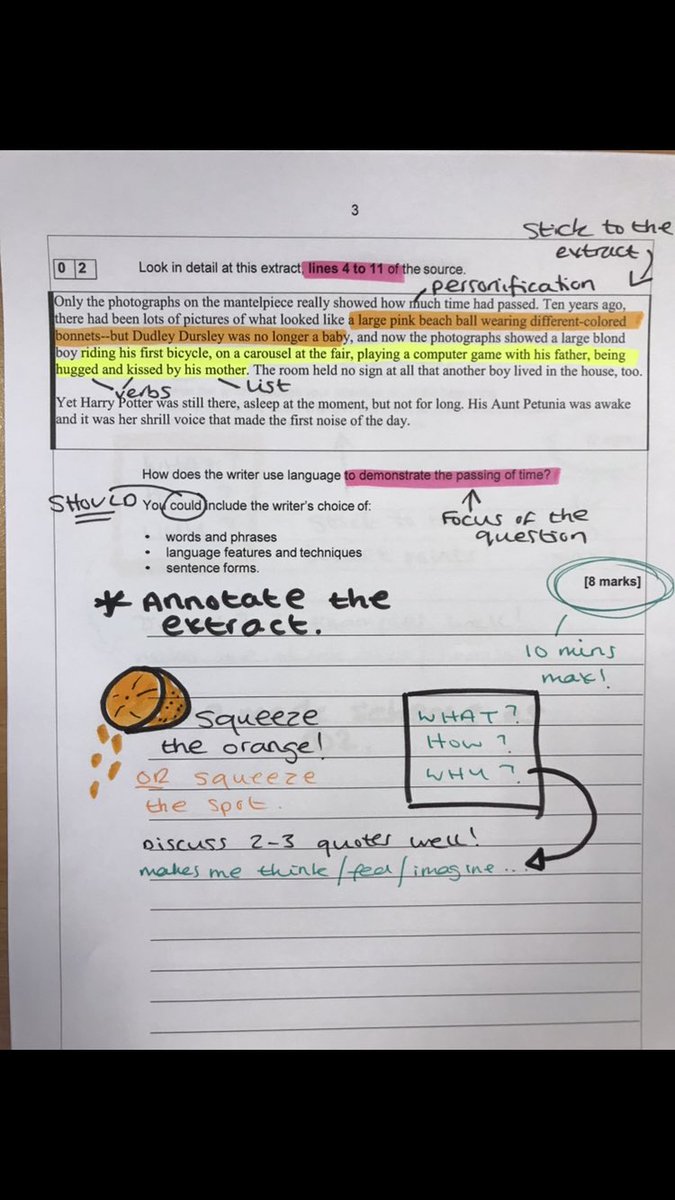 3
Stick to the
extract
0 2 Look in detail at this extract, lines 4 to 11 of the source.
personification
Only the photographs on the mantelpiece really showed how much time had passed. Ten years ago,
there had been lots of pictures of what looked like a large pink beach ball wearing different-colored
bonnets--but Dudley Dursley was no longer a baby, and now the photographs showed a large blond
boy riding his first bicycle, on a carousel at the fair, playing a computer game with his father, being
hugged and kissed by his mother. The room held no sign at all that another boy lived in the house, too.
verbs list
Yet Harry Potter was still there, asleep at the moment, but not for long. His Aunt Petunia was awake
and it was her shrill voice that made the first noise of the day.
How does the writer use language to demonstrate the passing of time?
SHOULD You could include the writer's choice of:
Focus of the
question
• words and phrases
• language features and techniques
• sentence forms.
[8 marks]
* Annotate the
extract.
10 mins
max!
Squeeze
the orange!
OR squeeze
the spot.
WHAT?
HOW?
WHY?
Discuss 2-3 quotes well!
makes me think/feel/imagine...